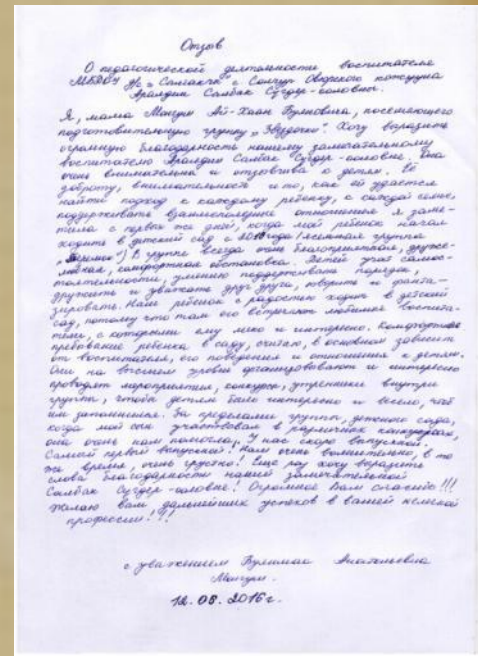 Отзыв
О педагогической деятельности воспитателя
МБДОУ д/с "Салгакчы" с. Солчур Овюрского кожууна
Аралдии Салбак Сугдер-ооловны.
Я, мама Монгуш Ай-Хаан Буяновича, посещающего
подготовительную группу "Звездочки". Хочу выразить
огромную благодарность нашему замечательному
воспитателю Аралдии Салбак Сугдер-ооловне. Она
очень внимательна и отзывчива к детям. Её
заботу, внимательность и то, как ей удается
найти подход к каждому ребенку, к каждой семье,
поддерживать взаимоотношения я заме-
тила с первых же дней, когда мой ребенок начал
ходить в детский сад с года (ясельная группа
В группе всегда очень благоприятная, друже-
любная, комфортная обстановка. Детей учат самос-
тоятельности, умению поддерживать порядок,
дружить и уважать друг друга, творить и фанта-
зировать. Наш ребенок с радостью ходит в детский
сад, потому что там его встречают любимые воспита-
тели, с которыми ему легко и интересно. Комфортное
пребывание ребенка в саду, считаю, в основном зависит
от воспитателя, его поведения и отношения к детям.
Они на высшем уровне организовывают и интересно
проводят мероприятия, конкурсы, утренники внутри
группы, чтобы детям было интересно и весело, чтоб
им запомнился. За пределами группы, детского сада,
когда мой сын участвовал в различных конкурсах,
она очень нам помогла. У нас скоро выпускной.
Самый первый выпускной! Нам очень волнительно, в то
же время, очень грустно! Еще раз хочу выразить
слова благодарности нашей замечательной
Салбак Сугдер-ооловне! Огромное Вам спасибо!!!
Желаю вам дальнейших успехов в вашей нелегкой
профессии!!!
с уважением Анатольевна
Монгуш.
12.08.2016г.